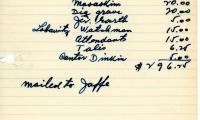 Masaskim 20.00
Dig grave 20.00
Jiv. Earth 5.00
Lobavitz Watchman 15.00
Attendants 15.00
Talis 6.25
Cantor Dinkin 5.00
$296.25
mailed to Jaffe